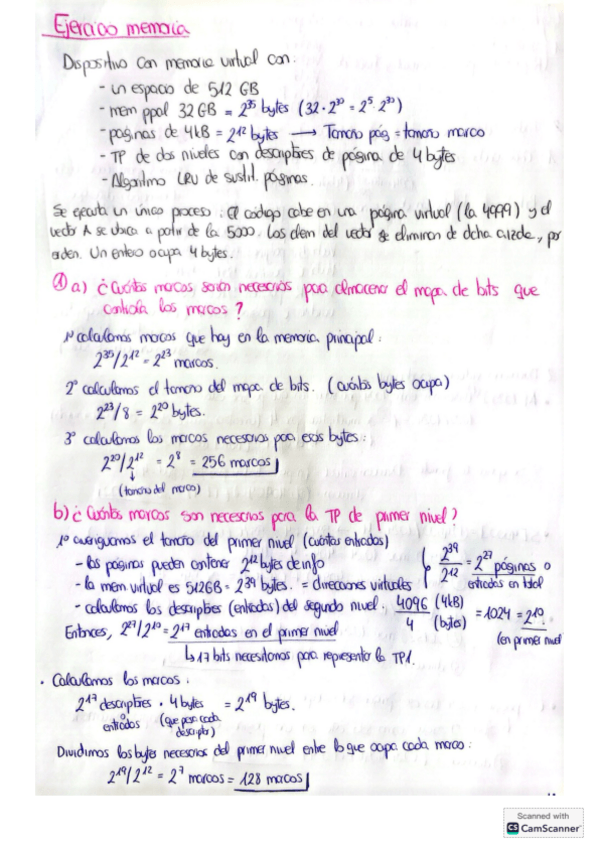 Ejercicio memoria
Dispositivo con memoria virtual con:
- un espacio de 512 GB
- mem ppal 32 GB = 2^35 bytes (32 · 2^30 = 2^5 · 2^30)
- paginas de 4kB = 2^12 bytes → Tamaño pág = tamaño marco
- TP de dos niveles con descriptores de página de 4 bytes
- Algoritmo LRU de sustit. páginas.
Se ejecuta un único proceso. El código cabe en una página virtual (la 4999) y el
vector A se ubica a partir de la 5000. Los elem del vector se eliminan de dcha a izda, por
orden. Un entero ocupa 4 bytes.
① a) ¿Cuántos marcos serán necesarios para almacenar el mapa de bits que
controla los marcos?
1º calculamos marcos que hay en la memoria principal:
2^35/2^12 = 2^23 marcos.
2º calculamos el tamaño del mapa de bits. (cuántos bytes ocupa)
2^23/8 = 2^20 bytes.
3º calculamos los marcos necesarios para esos bytes:
2^20/2^12 = 2^8 = 256 marcos
↓
(tamaño del marco)
b) ¿Cuántos marcos son necesarios para la TP de primer nivel?
1º averiguamos el tamaño del primer nivel (cuántas entradas)
- las páginas pueden contener 2^12 bytes de info
- la mem virtual es 512GB = 2^39 bytes. = direcciones virtuales { 2^39/2^12 = 2^27 páginas o entradas en total
- calculamos los descriptores (entradas) del segundo nivel. 4096 (4kB) / 4 (bytes) = 1024 = 2^10.
(en primer nivel
Entonces, 2^27/2^10 = 2^17 entradas en el primer nivel
↳ 17 bits necesitamos para representar la TP1.
• Calculamos los marcos:
2^17 descriptores · 4 bytes = 2^19 bytes.
o entradas (que para cada descriptor)
Dividimos los bytes necesarios del primer nivel entre lo que ocupa cada marco:
2^19/2^12 = 2^7 marcos = 128 marcos
Scanned with
CS CamScanner